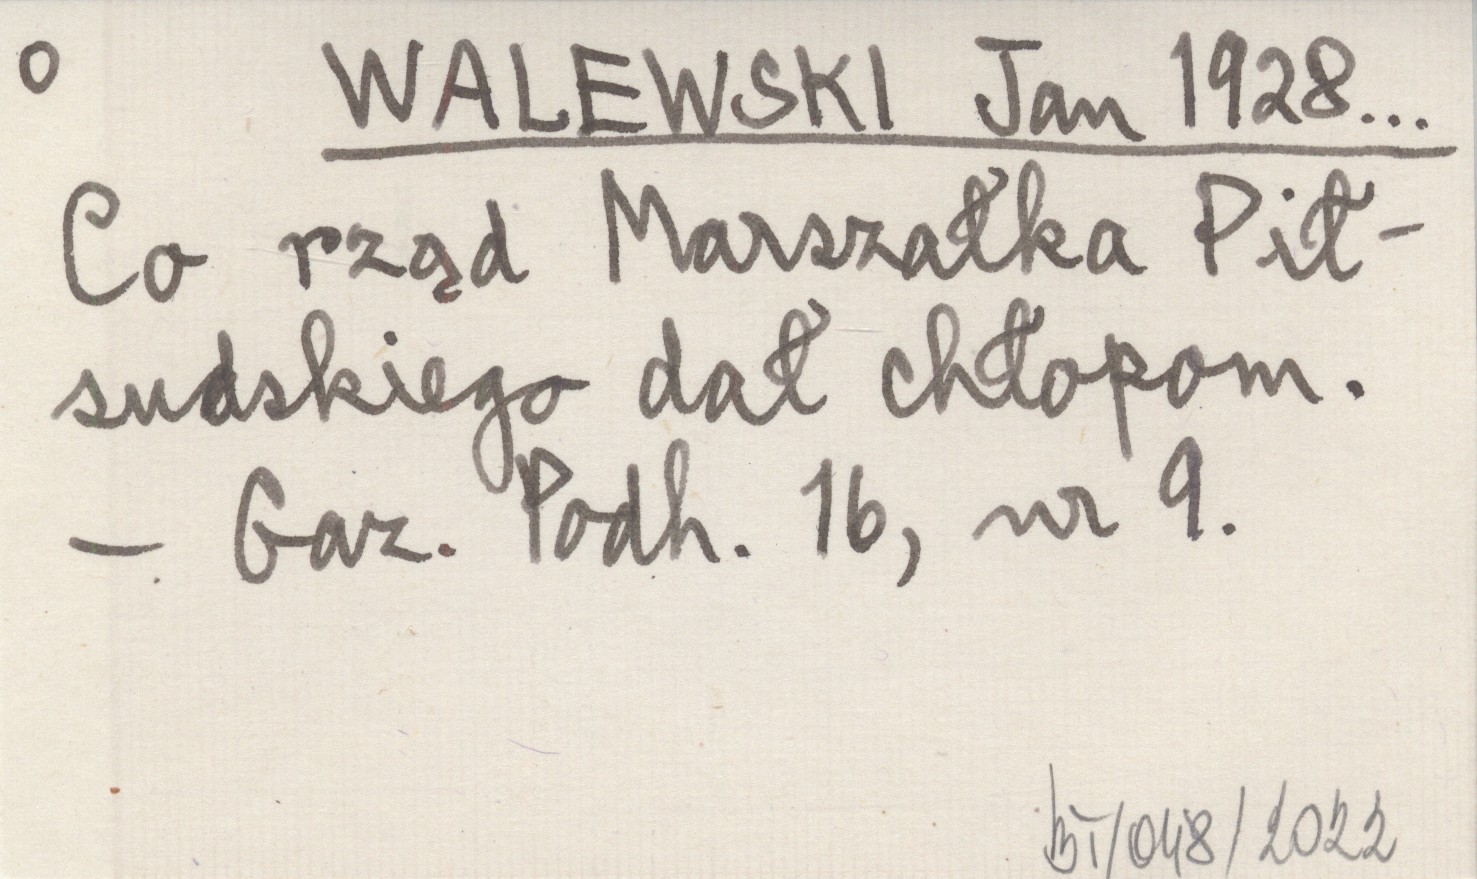 o WALEWSKI Jan 1928...
Co rząd Marszałka Pił-
sudskiego dał chłopom.
— Gaz. Podh. 16, nr 9.
/048/2022